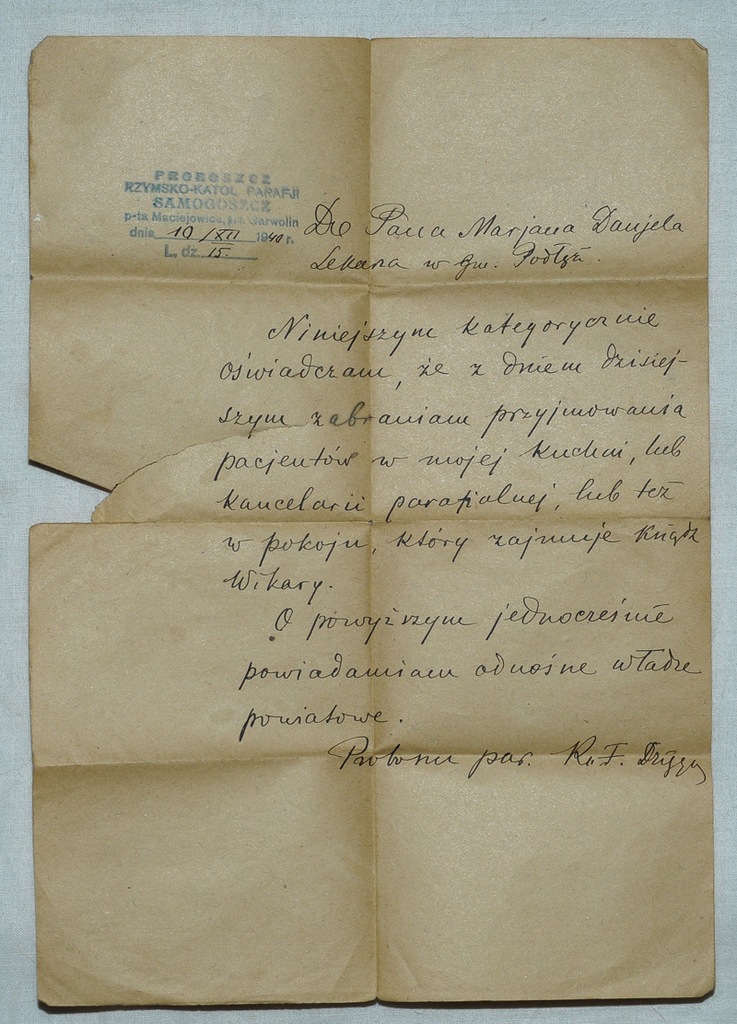 PROBOSZCZ
RZYMSKO-KATOL. PARAFJI
SAMOGOSZCZ
p-ta Maciejowice, pow. Garwolin
dnia 10/XII 1940 r.
L. dz. 15.
Do Pana Marjana Danjela
Lekarza w Gm. Podłęż.
Niniejszym kategorycznie
oświadczam, że z dniem dzisiej-
szym zabraniam przyjmowania
pacjentów w mojej kuchni, lub
kancelarii parafialnej, lub też
w pokoju, który zajmuje Ksiądz
Wikary.
O powyższym jednocześnie
powiadamiam odnośne władze
powiatowe.
Proboszcz par. Ks. F.